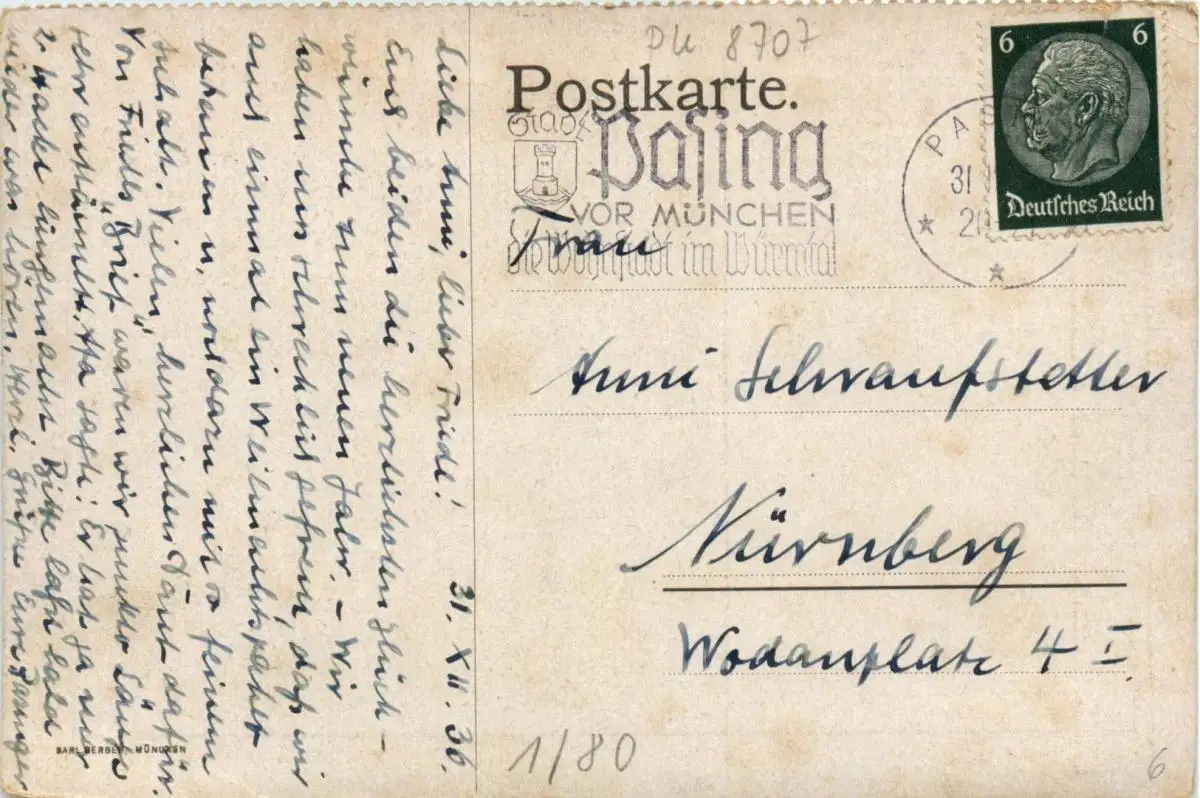 DK 8707
Postkarte.
Stadt
Pasing
VOR MÜNCHEN
die Wohnstadt im Würmtal
PASING
31
20
6 6
Deutsches Reich
Frau
Anni Schraufstetter
Nürnberg
Wodanplatz 4 I
31. XII. 36.
Liebe Anni, lieber Friedl!
Euch beiden die herzlichsten Glück-
wünsche zum neuen Jahr. – Wir
haben uns schrecklich gefreut, daß wir
auch einmal ein Weihnachtspaket
bekamen u. noch dazu mit so feinem
Inhalt. Vielen herzlichen Dank dafür.
Von Friedls Brief waren wir punkto Länge
sehr enttäuscht. sagte: Er hat ja nur
2 lang gemacht. Bitte laßt bald
wieder was hören. Herzl. Grüße Eure
CARL GERBER, MÜNCHEN
1/80
6